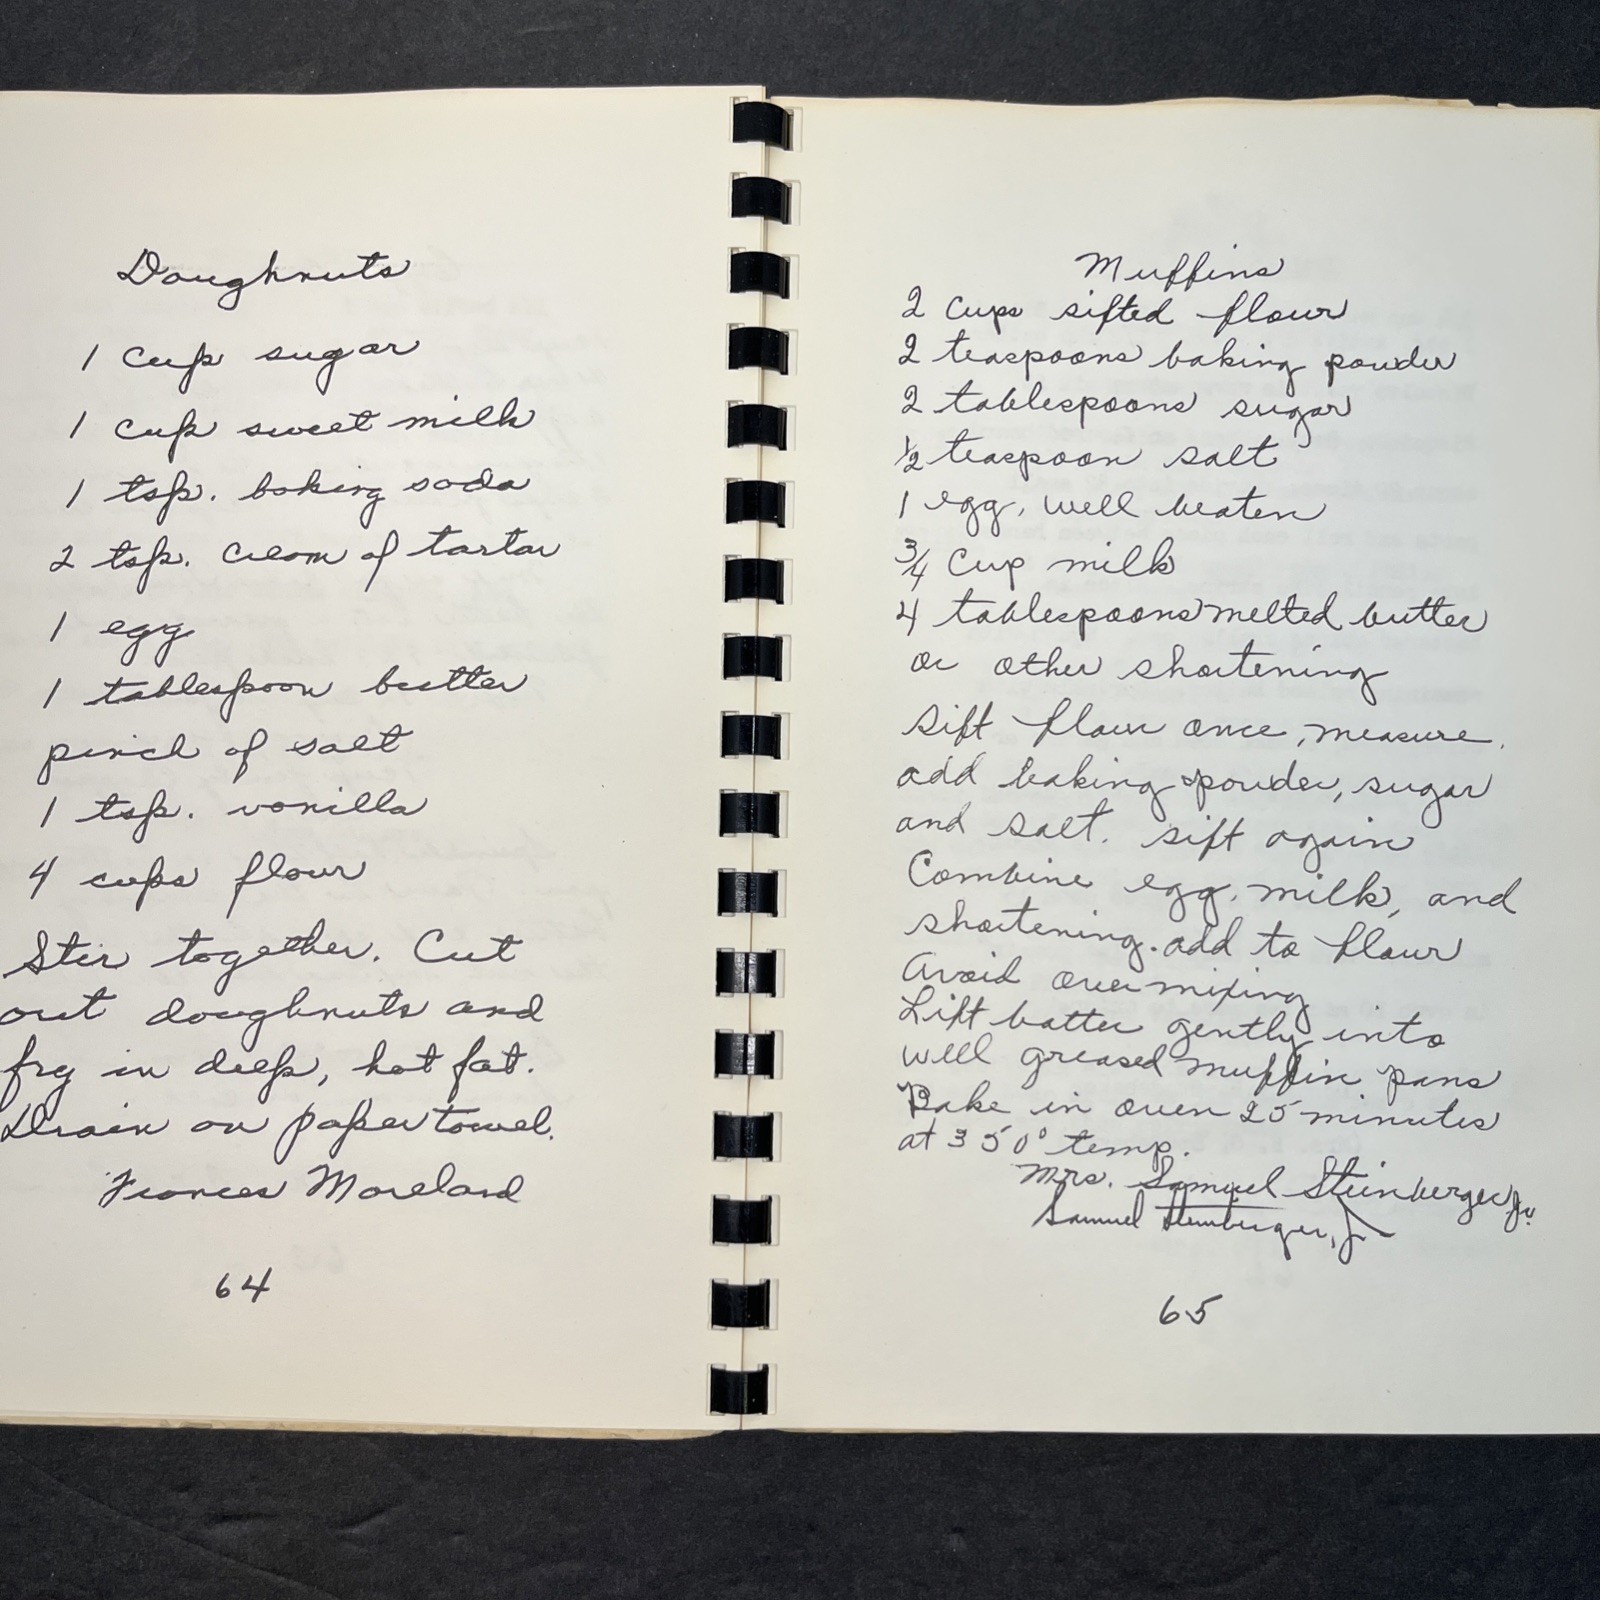 Doughnuts
1 cup sugar
1 cup sweet milk
1 tsp. baking soda
2 tsp. cream of tartar
1 egg
1 tablespoon butter
pinch of salt
1 tsp. vanilla
4 cups flour
Stir together. Cut
out doughnuts and
fry in deep, hot fat.
Drain on paper towel.
Frances Moreland
64
Muffins
2 cups sifted flour
2 teaspoons baking powder
2 tablespoons sugar
1/2 teaspoon salt
1 egg, well beaten
3/4 cup milk
4 tablespoons melted butter
or other shortening
Sift flour once, measure,
add baking powder, sugar
and salt. sift again
Combine egg, milk, and
shortening. add to flour
Avoid over mixing
Lift batter gently into
well greased muffin pans
Bake in oven 25 minutes
at 350° temp.
Mrs. Samuel Steinberger Jr.
Samuel Steinberger, Jr
65